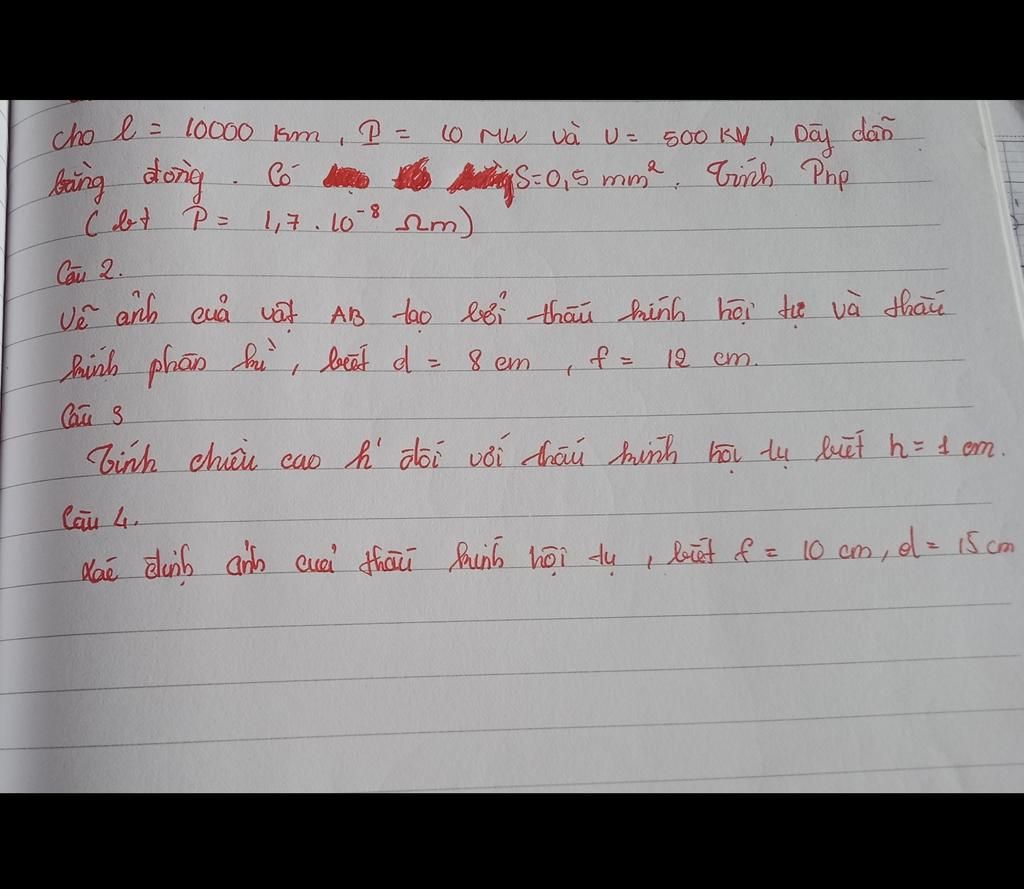 cho l = 10000 km, P = 10 MW và U = 500 KV, Dây dẫn
bằng đồng. Có S=0,5 mm². Tính Php
(bt P = 1,7.10⁻⁸ Ωm)
Câu 2.
Vẽ ảnh của vật AB tạo bởi thấu kính hội tụ và thấu
kính phân kì, biết d = 8 cm, f = 12 cm.
Câu 3
Tính chiều cao h' đối với thấu kính hội tụ biết h = 1 cm.
Câu 4.
Xác định ảnh của thấu kính hội tụ, biết f = 10 cm, d = 15 cm